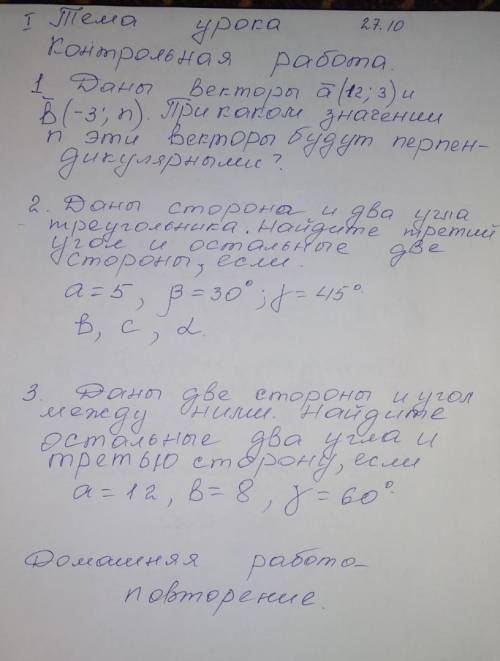 I Тема урока 27.10
Контрольная работа.
1. Даны векторы a̅(12; 3) и
b̅(-3; n). При каком значении
n эти векторы будут перпен-
дикулярными?
2. Даны сторона и два угла
треугольника. Найдите третий
угол и остальные две
стороны, если.
a = 5, β = 30°; γ = 45°.
в, с, α.
3. Даны две стороны и угол
между ними. Найдите
остальные два угла и
третью сторону, если
a = 12, в = 8, γ = 60°.
Домашняя работа-
повторение.